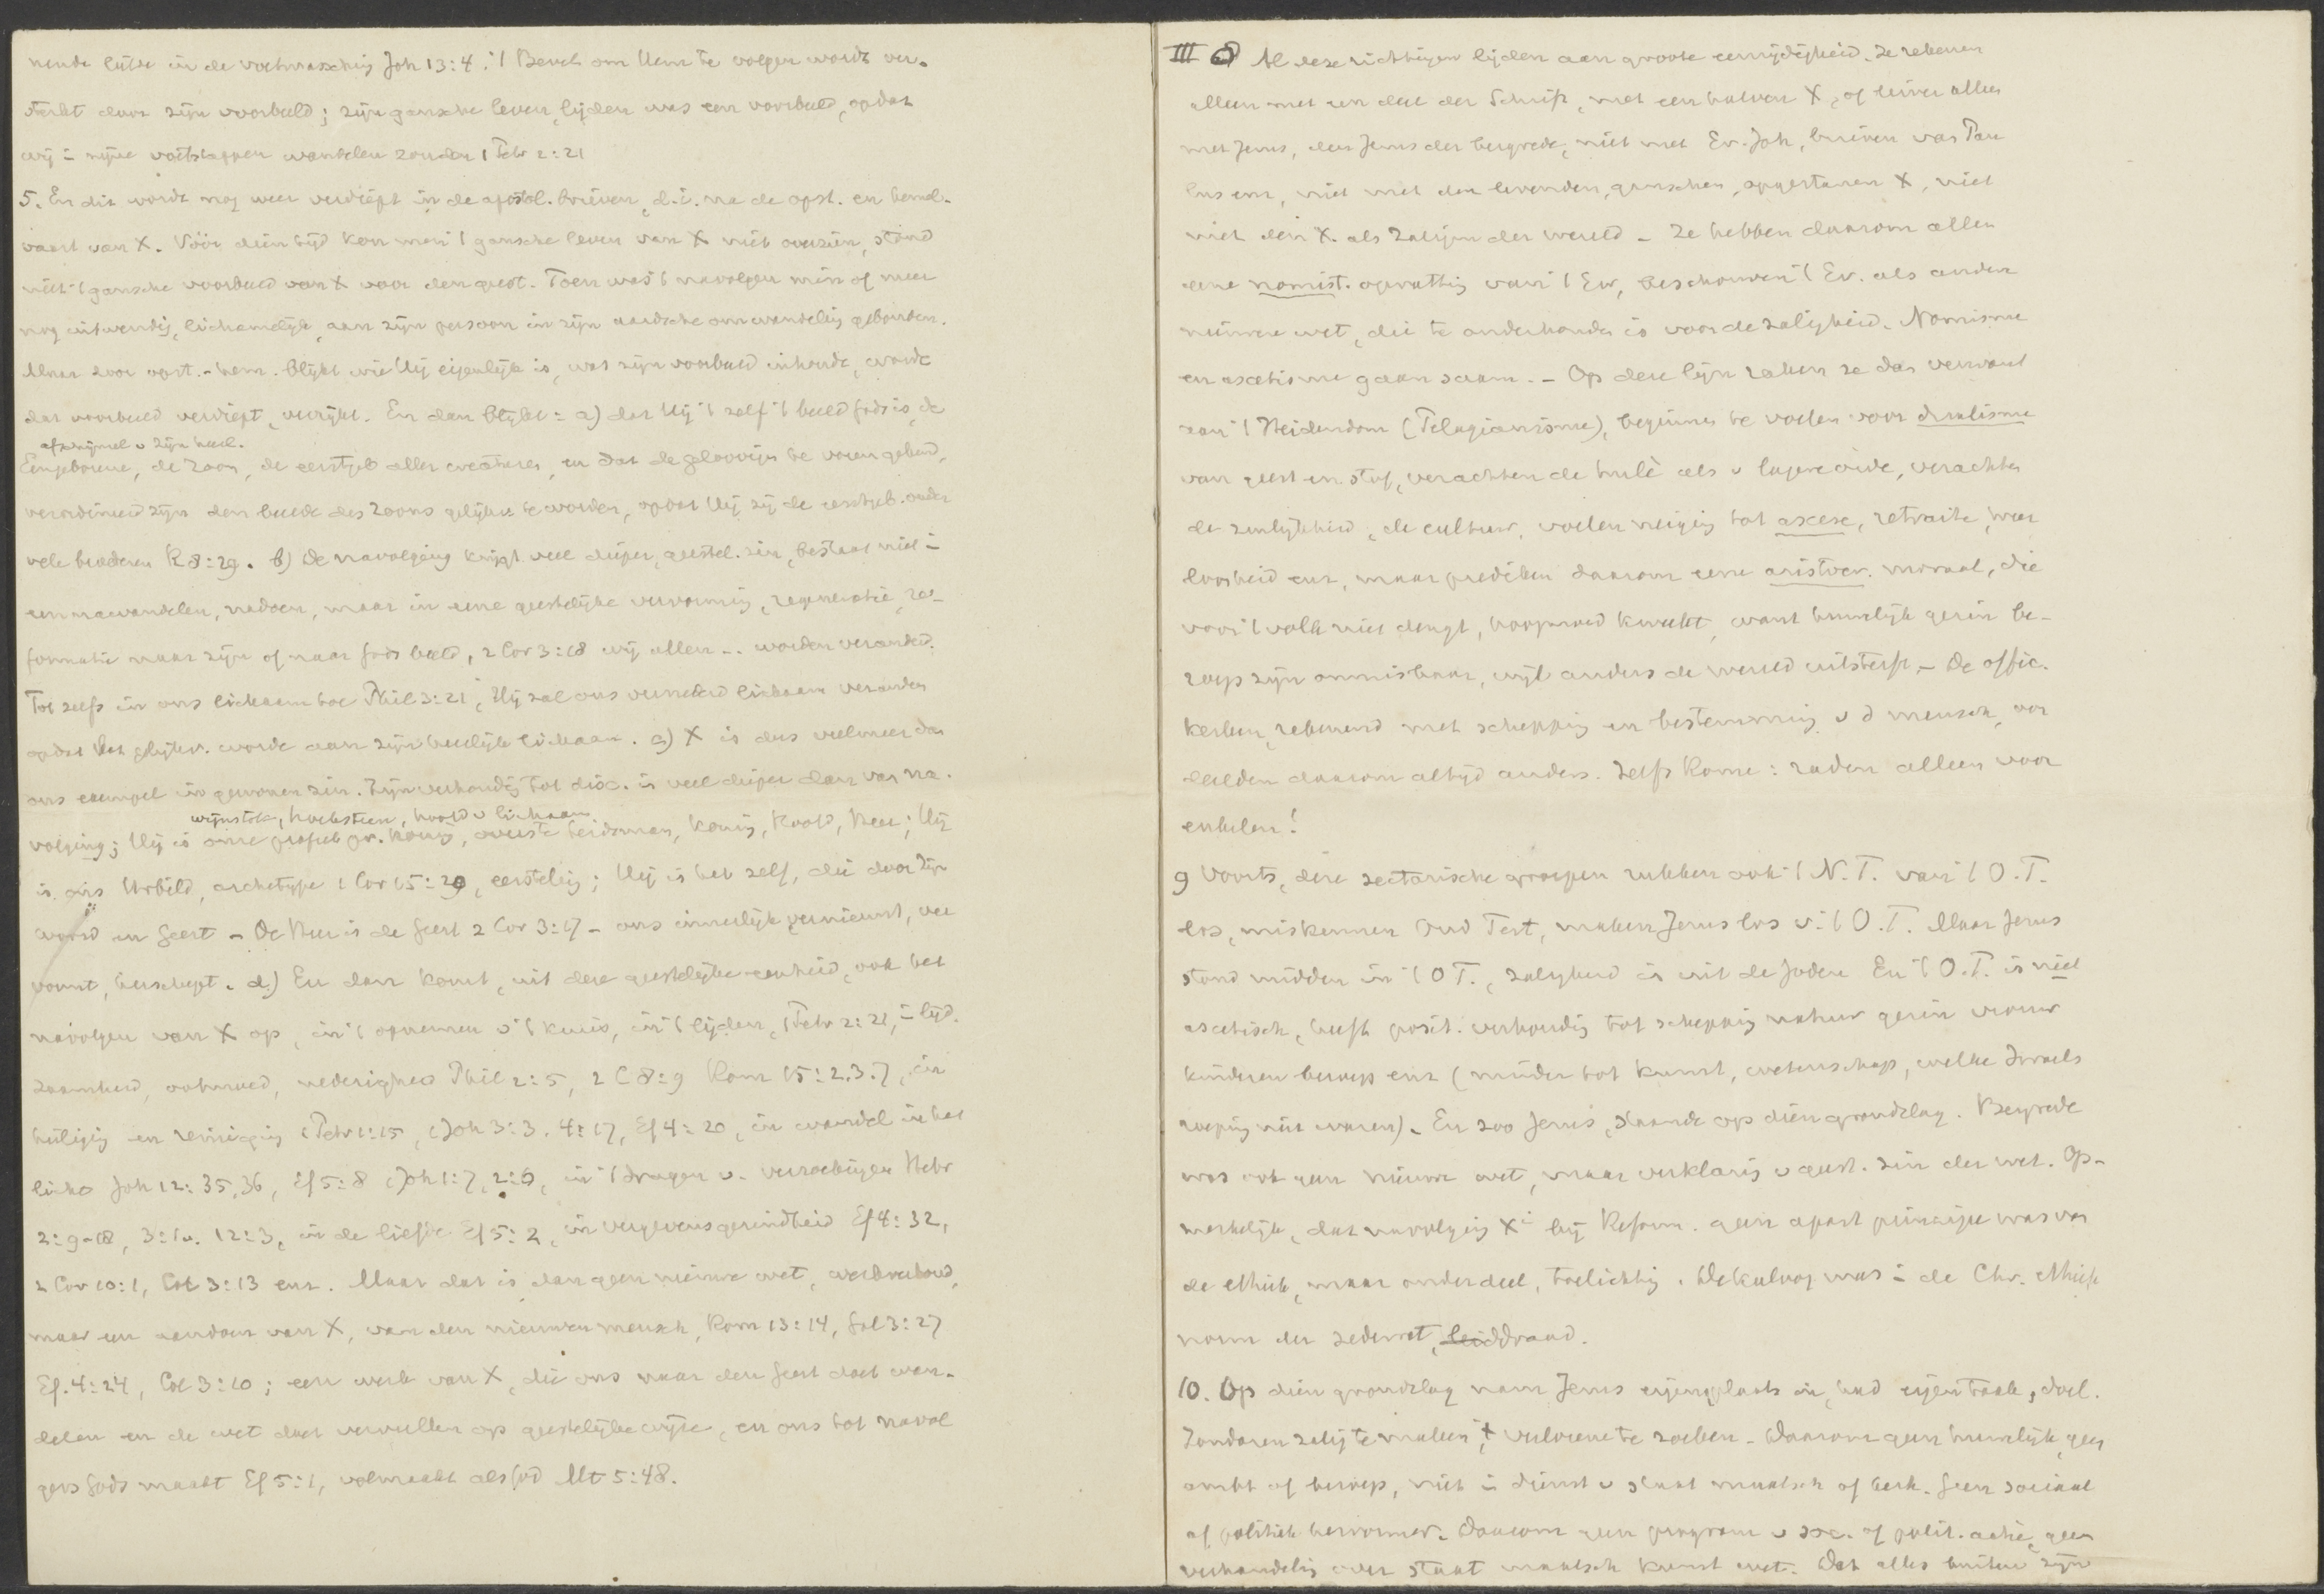 nende liefde in de voetwassching Joh 13:4. 't Bevel om Hem te volgen wordt ver-
sterkt door zijn voorbeeld; zijn gansche leven, lijden was een voorbeeld, opdat
wij i zijne voetstappen wandelen zouden 1 Petr 2:21
5. En dit wordt nog weer verdiept in de apostol. brieven, d.i. na de opst. en hemel-
vaart van X. Vóór dien tijd kon men 't gansche leven van X niet overzien, stond
niet 't gansche voorbeeld van X voor den geest. Toen was 't navolgen min of meer
nog uitwendig, lichamelijk, aan zijn persoon in zijn aardsche omwandeling gebonden.
Maar door opst. - hem. blijkt wie Hij eigenlijk is, wat zijn voorbeeld inhoudt, wordt
dat voorbeeld verdiept, verrijkt. En dan blijkt: a) dat Hij 't zelf 't beeld Gods is, de
afschijnsel v zijn heerl.
Eengeborene, de Zoon, de eerstgeb aller creaturen, en dat de geloovigen te voren gekend,
verordineerd zijn den beelde des Zoons gelijkv. te worden, opdat Hij zij de eerstgeb. onder
vele broederen R 8:29. b) De navolging krijgt veel dieper, geestel. zin, bestaat niet i
een nawandelen, nadoen, maar in eene geestelijke vervorming, regeneratie, re-
formatie naar zijn of naar Gods beeld, 2 Cor 3:18 wij allen ... worden veranderd.
Tot zelfs in ons lichaam toe Phil 3:21, Hij zal ons vernederd lichaam veranderen
opdat het gelijkv. worde aan zijn heerlijk lichaam. c) X is dus veel meer dan
ons exempel in gewonen zin. Zijn verhoudg tot disc. is veel dieper dan van na-
wijnstok, hoeksteen, hoofd v lichaam
volging; Hij is onze profeet pr. koning, overste leidsman, koning, hoofd, Heer; Hij
is ons Urbild, archetype 1 Cor 15:20, eersteling; Hij is het zelf, die door zijn
woord en Geest - De Heer is de Geest 2 Cor 3:17 - ons innerlijk vernieuwt, ver
vormt, herschept. d) En dan komt, uit deze geestelijke eenheid, ook het
navolgen van X op, in 't opnemen v 't kruis, in 't lijden, 1 Petr 2:21, i lijd-
zaamheid, ootmoed, nederigheid Phil 2:5, 2 C 8:9 Rom 15:2.3.7, in
heiliging en reiniging 1 Petr 1:15, 1 Joh 3:3. 4:17, Ef 4:20, in wandel in het
licht Joh 12:35,36, Ef 5:8 1 Joh 1:7, 2:6, in 't dragen v. verzoekingen Hebr
2:9-18, 3:1v. 12:3, in de liefde Ef 5:2, in vergevensgezindheid Ef 4:32,
2 Cor 10:1, Col 3:13 enz. Maar dat is dan geen nieuwe wet, 
maar een aandoen van X, van den nieuwen mensch, Rom 13:14, Gal 3:27
Ef. 4:24, Col 3:10; een werk van X, die ons naar den Geest doet wan-
delen en de wet doet vervullen op geestelijke wijze, en ons tot navol
gers Gods maakt Ef 5:1, volmaakt als God Mt 5:48.
III 8 Al deze richtingen lijden aan groote eenzijdigheid. Ze rekenen
alleen met een deel der Schrift, met een halven X, of liever alleen
met Jezus, den Jezus der bergrede, niet met Ev. Joh, brieven van Pau
lus enz, niet met den levenden, ganschen, opgestanen X, niet
met den X. als Zaligm der wereld - Ze hebben daarom allen
eene nomist. opvatting van 't Ev, beschouwen 't Ev. als andere
nieuwe wet, die te onderhouden is voor de zaligheid. Nomisme
en ascetisme gaan saam. - Op deze lijn raken ze dan verwant
aan 't Heidendom (Pelagianisme), beginnen te voelen voor dualisme
van geest en stof, verachten de hulè als v lagere orde, verachten
de zinlijkheid, de cultuur, voelen neiging tot ascese, retraite, weer
loosheid enz, maar prediken daarom eene aristocr. moraal, die
voor 't volk niet deugt, hoogmoed kweekt, want huwelijk gezin be-
roep zijn onmisbaar, wijl anders de wereld uitsterft. - De offic.
kerken, rekenend met schepping en bestemming v d mensch, oor
deelden daarom altijd anders. Zelfs Rome: raden alleen voor
enkelen!
9 Voorts, deze sectarische groepen rukken ook 't N.T. van 't O.T.
los, miskennen Oud Test, maken Jezus los v. 't O.T. Maar Jezus
stond midden in 't O T., zaligheid is uit de Joden En 't O.T. is niet
ascetisch, heeft posit. verhoudig tot schepping natuur gezin vrouw
kinderen beroep enz (minder tot kunst, wetenschap, welke Israels
roeping niet waren). En zoo Jezus, staande op dien grondslag. Bergrede
was ook geen nieuwe wet, maar verklaring v geest. zin der wet. Op-
merkelijk, dat navolging Xi bij Reform. geen apart principe was van
de ethiek, maar onderdeel, toelichting. Dekaloog was i de Chr. ethiek
norm der zedewet, leiddraad.
10. Op dien grondslag nam Jezus eigen plaats in, had eigen taak, doel.
Zondaren zalig te maken, 't verlorene te zoeken - Daarom geen huwelijk, geen
ambt of beroep, niet i dienst v staat maatsch of kerk. Geen sociaal
of politiek hervormer. Daarom geen program v soc. of polit. actie, geen
verhandelig over staat maatsch kunst wet. Dat alles buiten zijn